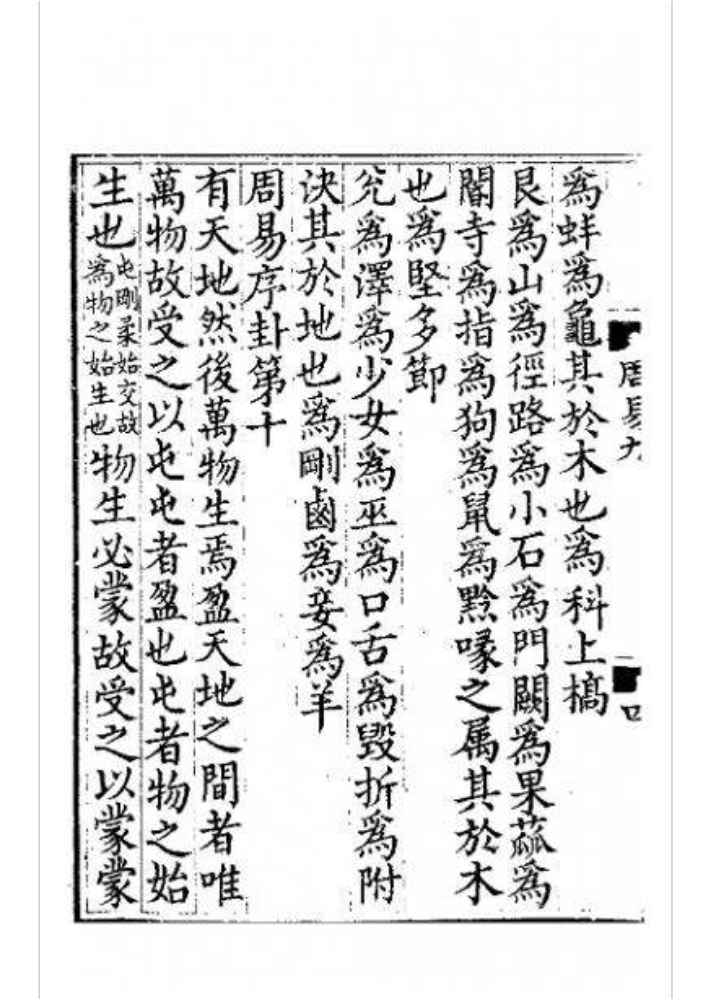 周易九
四
爲蚌爲龜其於木也爲科上槁
艮爲山爲徑路爲小石爲門闕爲果蓏爲
閽寺爲指爲狗爲鼠爲黔喙之属其於木
也爲堅多節
兊爲澤爲少女爲巫爲口舌爲毀折爲附
決其於地也爲剛鹵爲妾爲羊
周易序卦第十
有天地然後萬物生焉盈天地之間者唯
萬物故受之以屯屯者盈也屯者物之始
生也屯剛柔始交故爲物之始生也物生必蒙故受之以蒙蒙